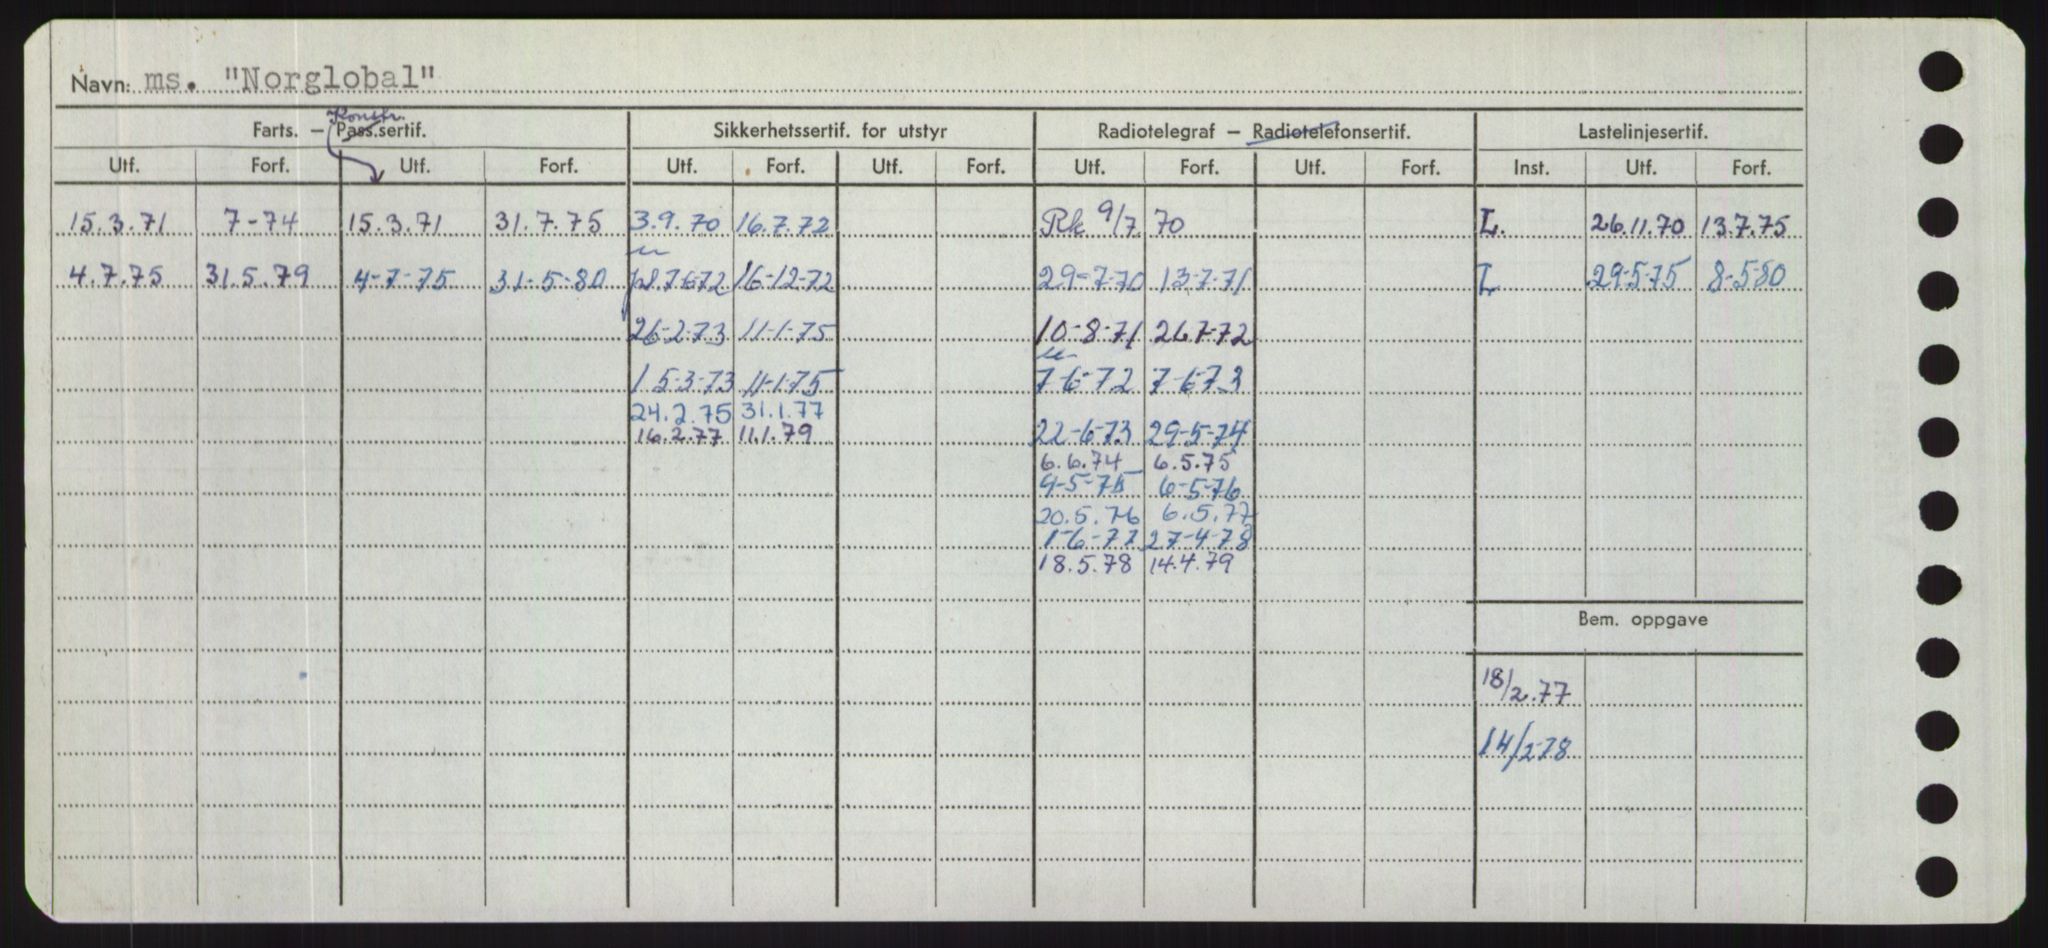 Navn: ms. "Norglobal"
Konstr.
Farts. – Pass.sertif. Sikkerhetssertif. for utstyr Radiotelegraf – Radiotelefonsertif. Lastelinjesertif.
Utf. Forf. Utf. Forf. Utf. Forf. Utf. Forf. Utf. Forf. Utf. Forf. Inst. Utf. Forf.
15.3.71 7-74 15.3.71 31.7.75 3.9.70 16.7.72 Rk 9/7 70 L. 26.11.70 13.7.75
4.7.75 31.5.79 4-7-75 31-5-80 7-6-72 16-12-72 29-7-70 13-7-71 L 29-5-75 8-5-80
26-2-73 11-1-75 10-8-71 26-7-72
15-3-73 11-1-75 7-6-72 7-6-73
24.2.75 31.1.77
16.2.77 11.1.79 22-6-73 29-5-74
6.6.74 6.5.75
9-5-75 6-5-76
20.5.76 6.5.77
1-6-77 27-4-78
18.5.78 14.4.79
Bem. oppgave
18/2.77
14/2-78